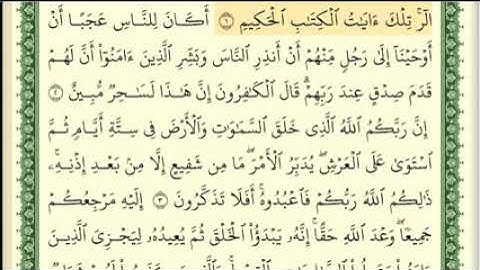 الٓرۚ تِلۡكَ ءَايَٰتُ ٱلۡكِتَٰبِ ٱلۡحَكِيمِ ١ أَكَانَ لِلنَّاسِ عَجَبًا أَنۡ
أَوۡحَيۡنَآ إِلَىٰ رَجُلٖ مِّنۡهُمۡ أَنۡ أَنذِرِ ٱلنَّاسَ وَبَشِّرِ ٱلَّذِينَ ءَامَنُوٓاْ أَنَّ لَهُمۡ
قَدَمَ صِدۡقٍ عِندَ رَبِّهِمۡۗ قَالَ ٱلۡكَٰفِرُونَ إِنَّ هَٰذَا لَسَٰحِرٞ مُّبِينٌ ٢
إِنَّ رَبَّكُمُ ٱللَّهُ ٱلَّذِي خَلَقَ ٱلسَّمَٰوَٰتِ وَٱلۡأَرۡضَ فِي سِتَّةِ أَيَّامٖ ثُمَّ
ٱسۡتَوَىٰ عَلَى ٱلۡعَرۡشِۖ يُدَبِّرُ ٱلۡأَمۡرَۖ مَا مِن شَفِيعٍ إِلَّا مِنۢ بَعۡدِ إِذۡنِهِۦۚ
ذَٰلِكُمُ ٱللَّهُ رَبُّكُمۡ فَٱعۡبُدُوهُۚ أَفَلَا تَذَكَّرُونَ ٣ إِلَيۡهِ مَرۡجِعُكُمۡ
جَمِيعٗاۖ وَعۡدَ ٱللَّهِ حَقًّاۚ إِنَّهُۥ يَبۡدَؤُاْ ٱلۡخَلۡقَ ثُمَّ يُعِيدُهُۥ لِيَجۡزِيَ ٱلَّذِينَ